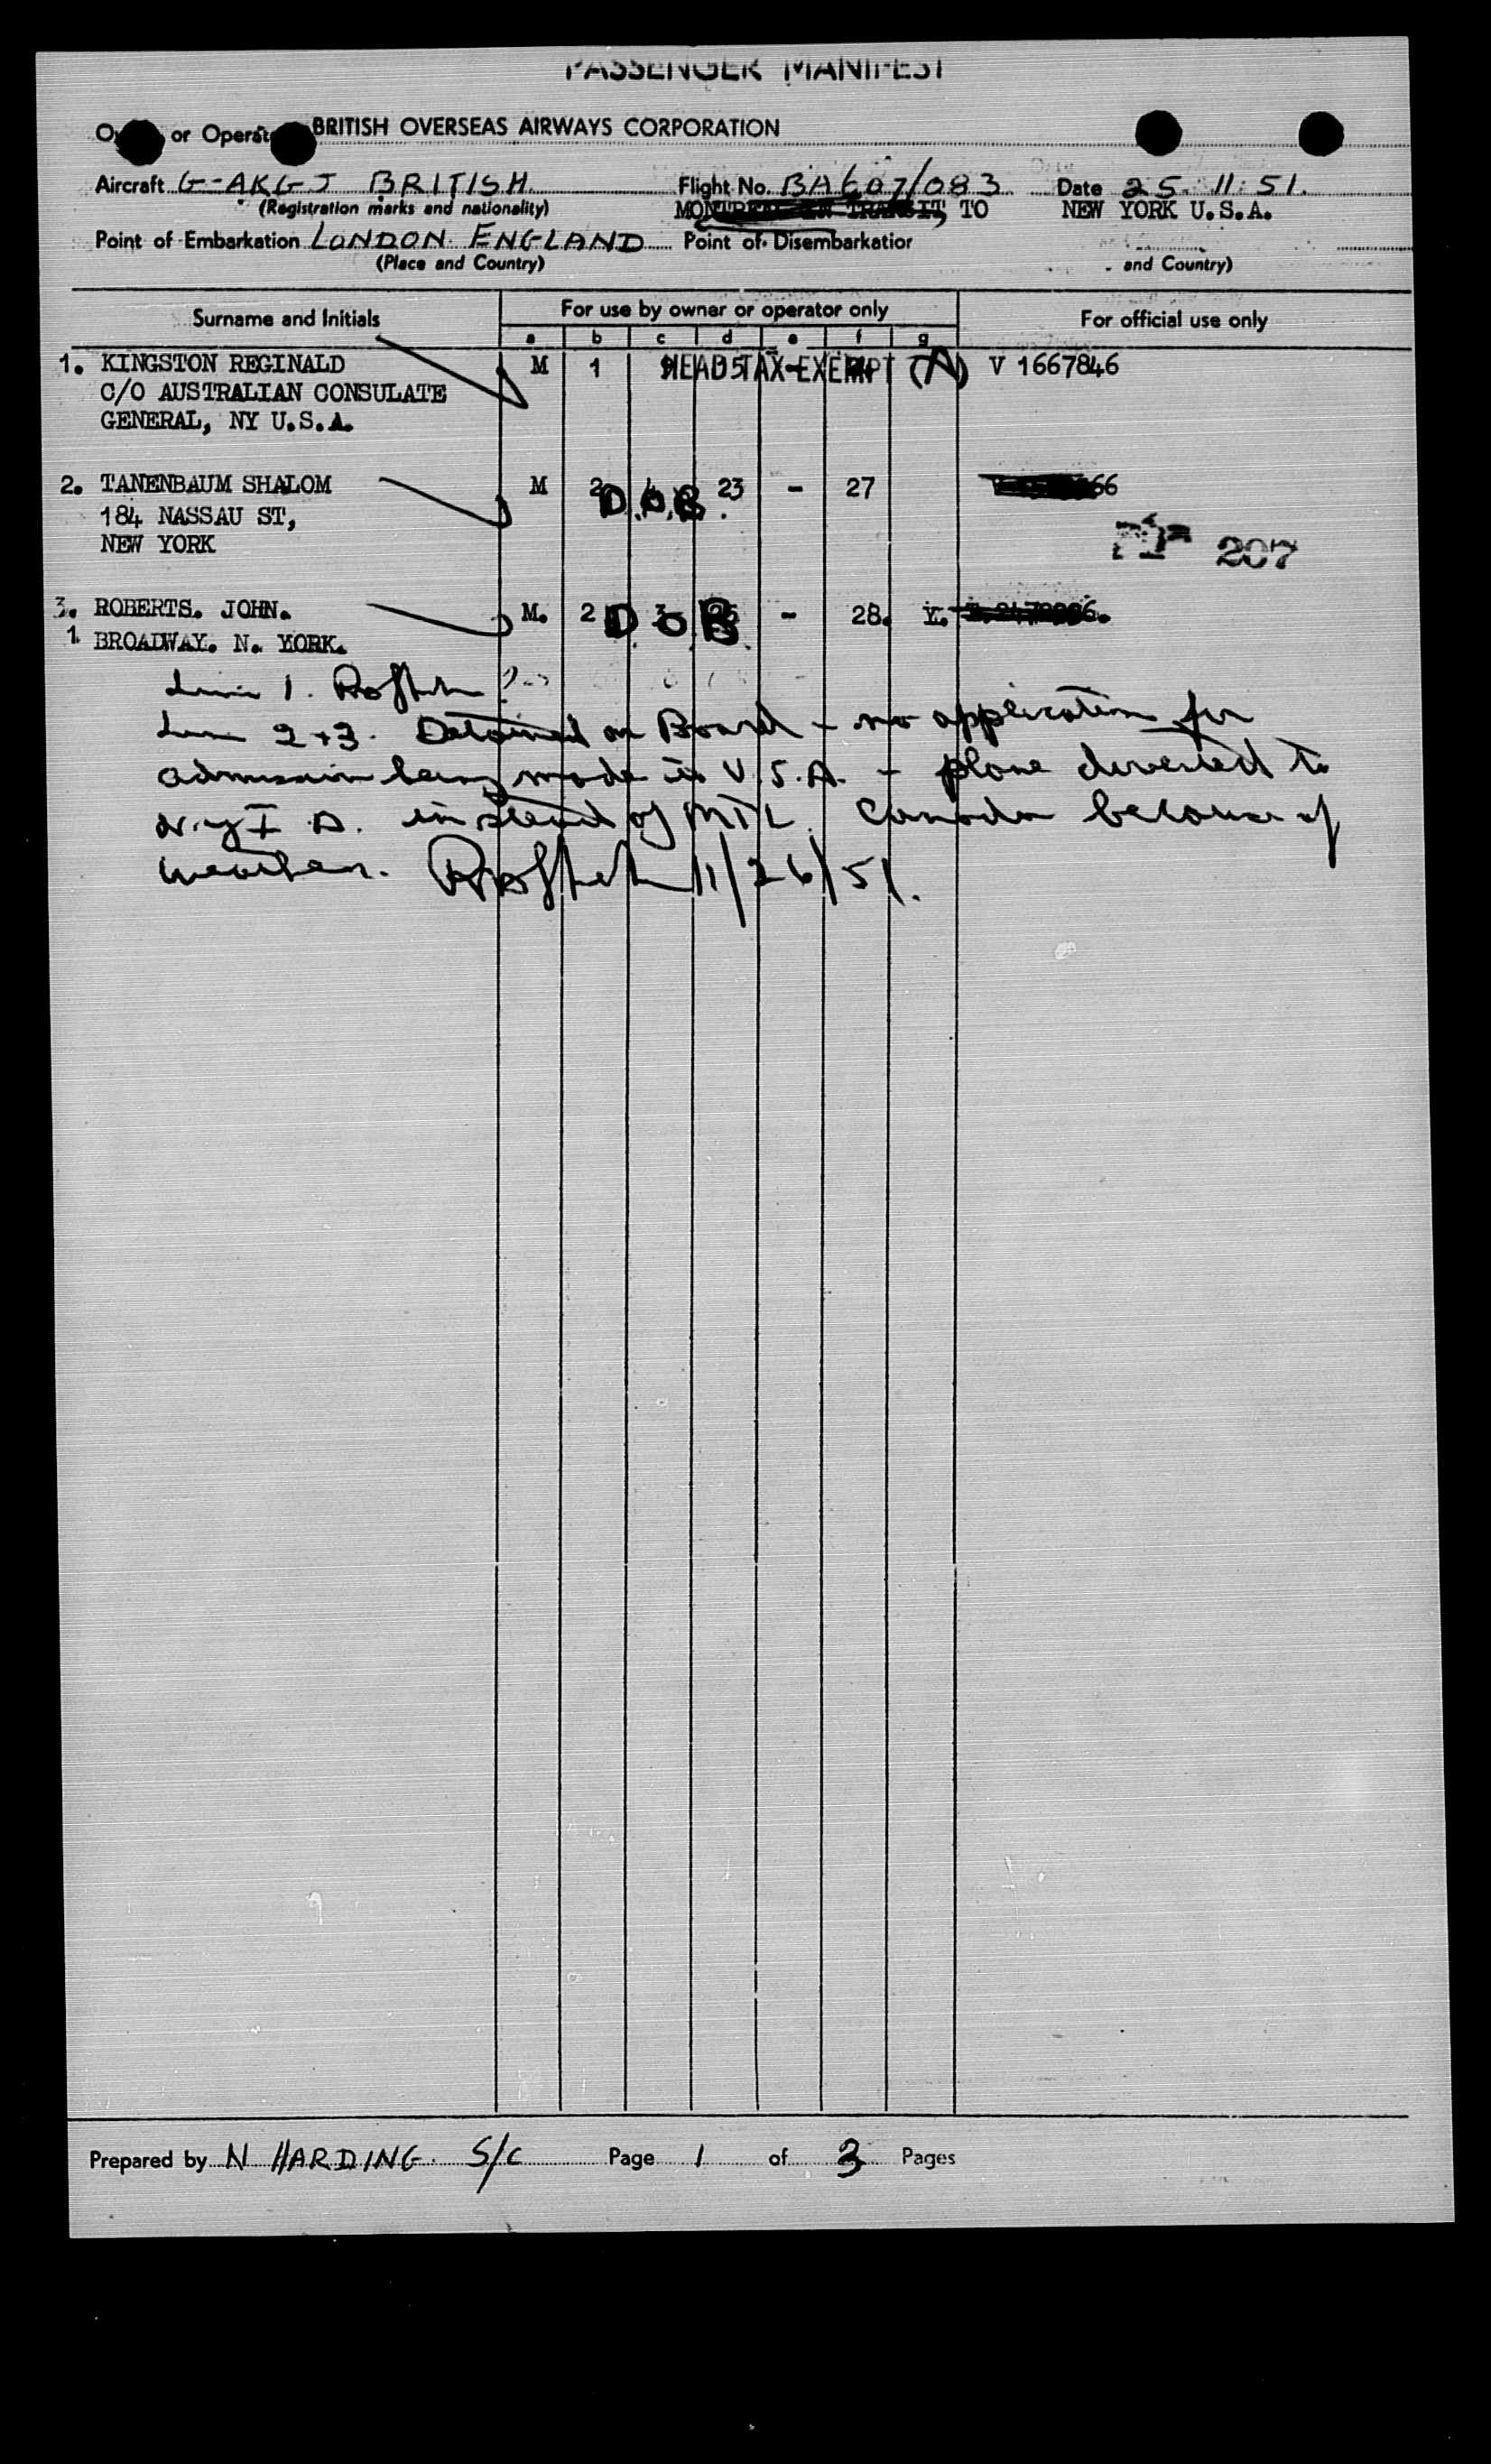 PASSENGER MANIFEST
or Operat BRITISH OVERSEAS AIRWAYS CORPORATION
Aircraft G-AKGJ BRITISH Flight No. BA607/083 Date 25.11.51.
(Registration marks and nationality) MONTREAL IN TRANSIT, TO NEW YORK U.S.A.
Point of Embarkation LONDON. ENGLAND Point of Disembarkation
(Place and Country) and Country)
Surname and Initials For use by owner or operator only For official use only
a b c d e f g
1. KINGSTON REGINALD M 1 HEAD TAX EXEMPT (A) V 1667846
C/O AUSTRALIAN CONSULATE
GENERAL, NY U.S.A.
2. TANENBAUM SHALOM M 2 D.O.B. 23 - 27 66
184 NASSAU ST,
NEW YORK 207
3. ROBERTS. JOHN. M. 2 D O B - 28. V.
1 BROADWAY. N. YORK.
Line 1.
Line 2+3. Detained on Board - no application for
admission being made in U.S.A. - plane diverted to
N.Y.I.A. instead of MTL. Canada because of
weather. 11/26/51.
Prepared by N HARDING. S/C Page 1 of 3 Pages